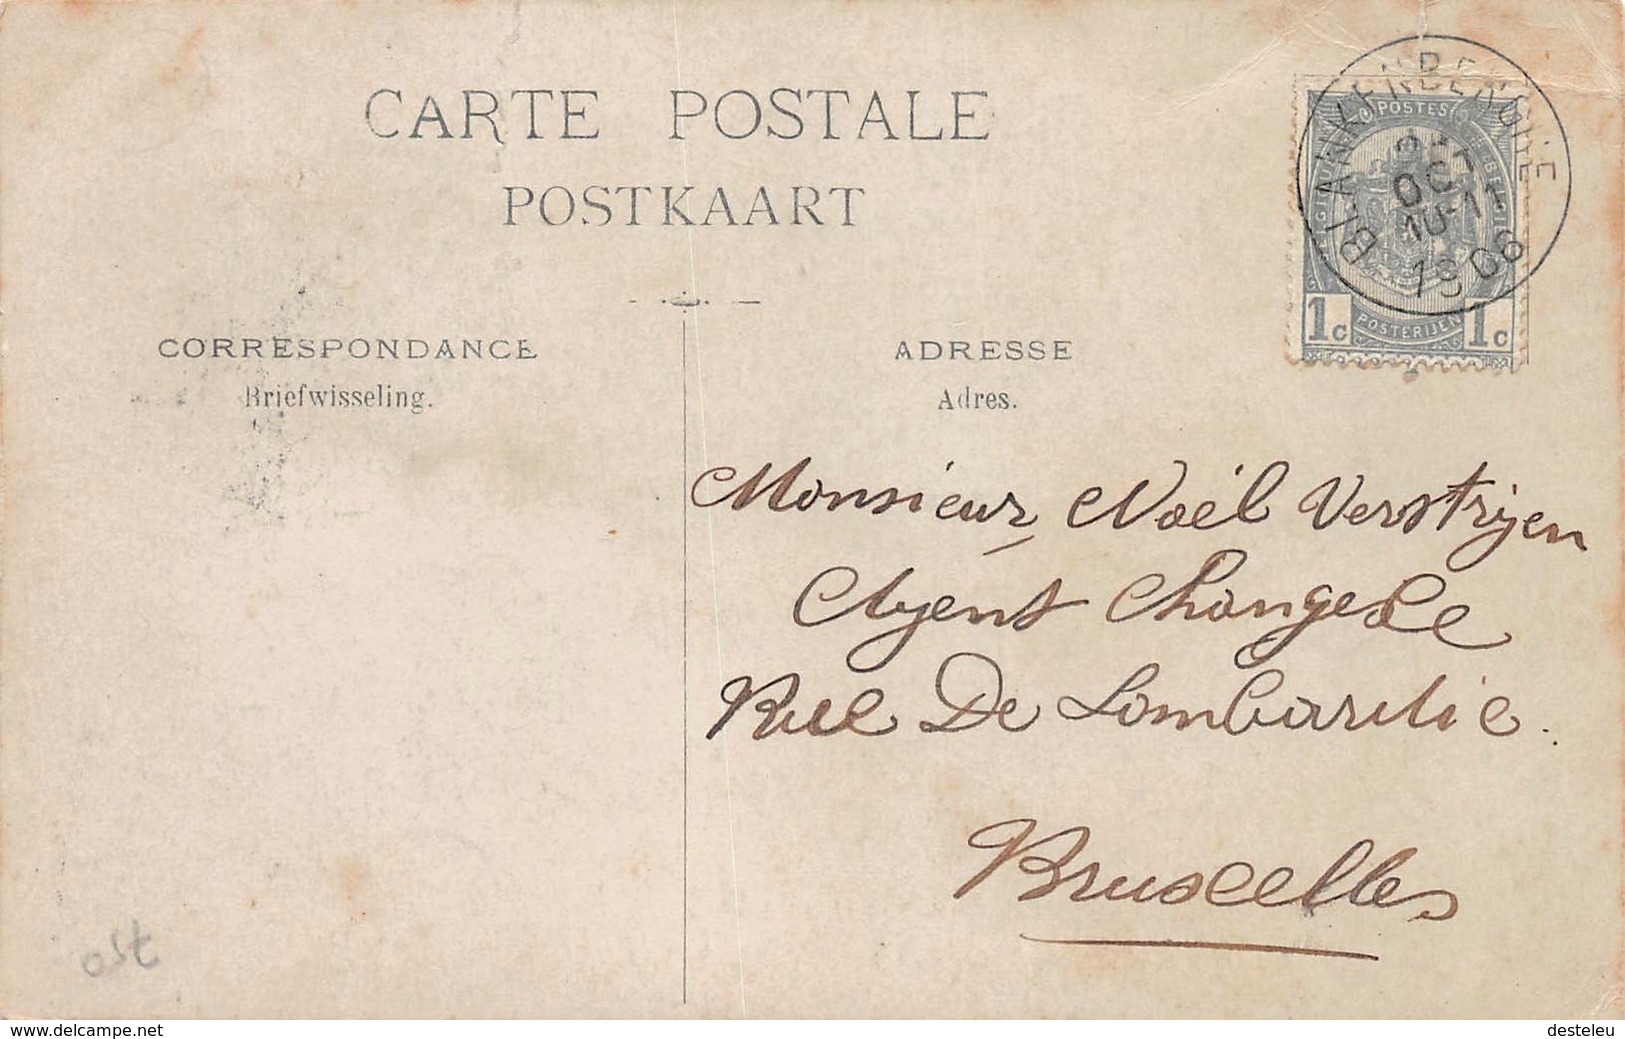 CARTE POSTALE
POSTKAART
CORRESPONDANCE
Briefwisseling.
ADRESSE
Adres.
BLANKENBERGHE
OCT
10-11
1908
POSTES
BELGIQUE
BELGIË
1c POSTERIJEN 1c
Monsieur Noël Verstrijen
Agent Change
Rue De Lombardie.
Bruxelles
ost
www.delcampe.net
desteleu